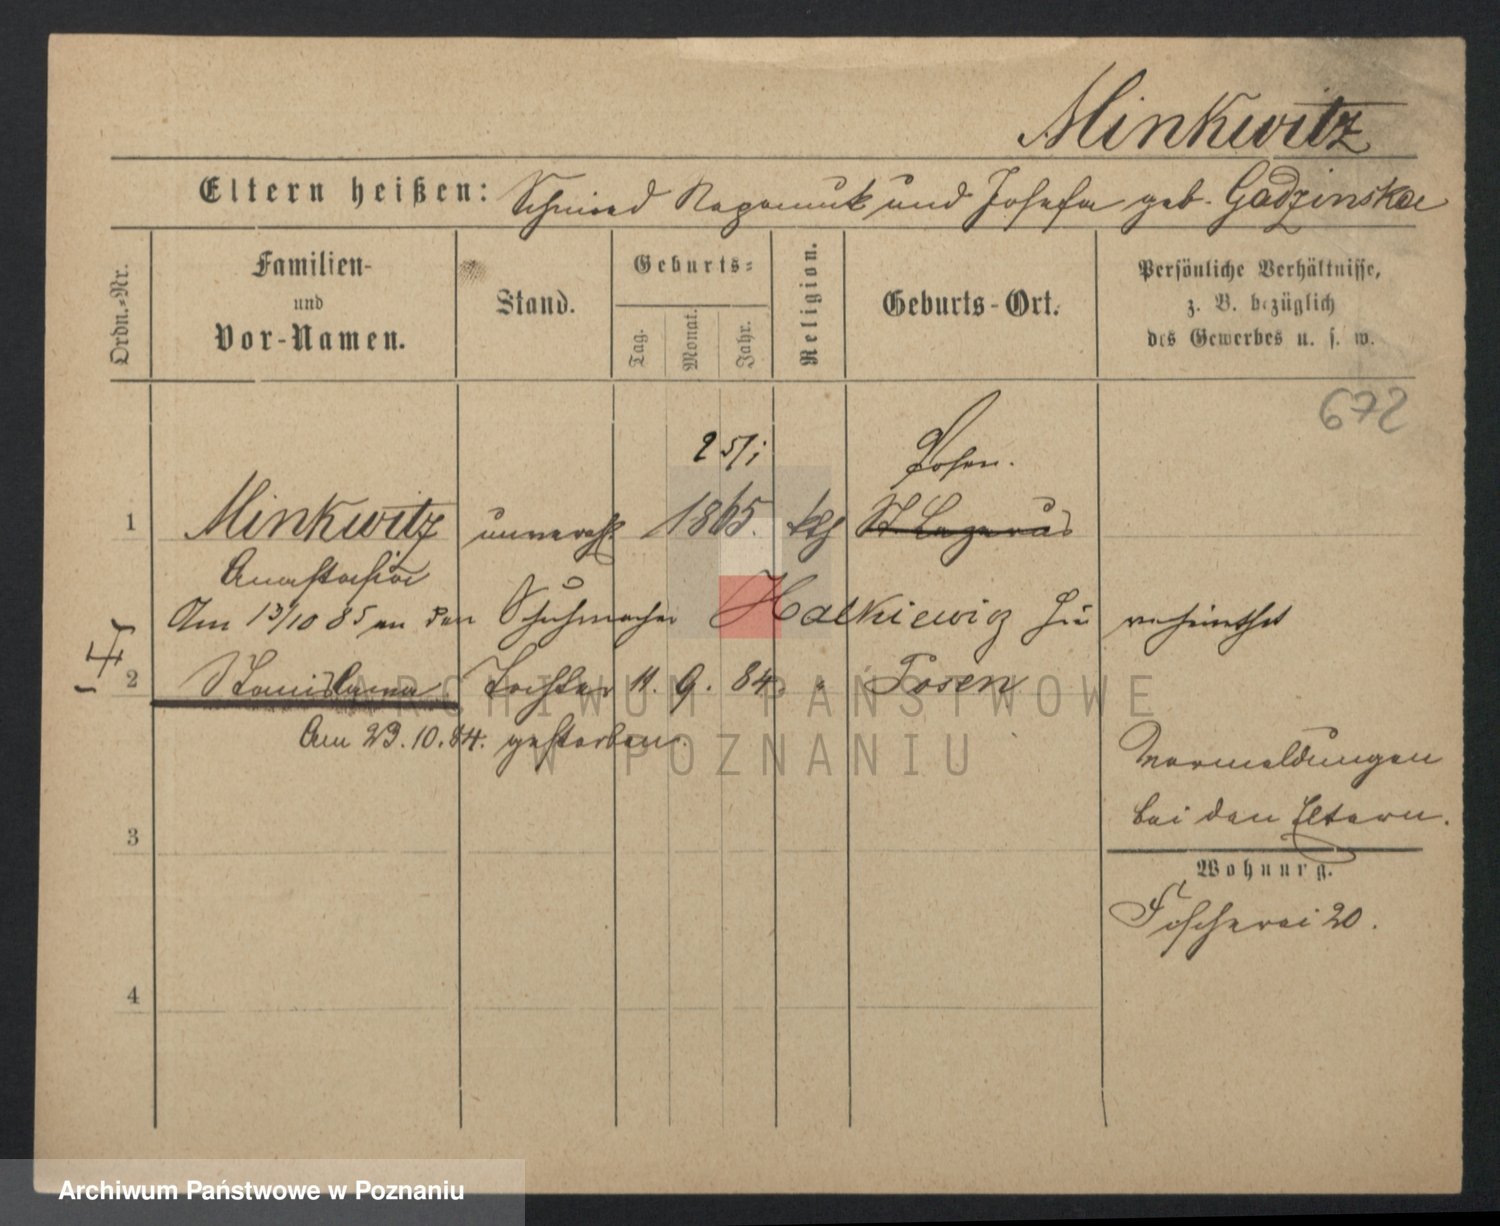 Minkwitz
Eltern heißen: Schmied Nepomuk und Josefa geb. Gadzinska
Ordn.-Nr.
Familien-
und
Vor-Namen.
Stand.
Geburts-
Tag.
Monat.
Jahr.
Religion.
Geburts-Ort.
Persönliche Verhältnisse,
z. B. bezüglich
des Gewerbes u. s. w.
672
25/1 Posen.
1 Minkwitz unvereh. 1865. kth St. Lazarus
Anastasia
Am 13/10 85 an den Schuhmacher Hatkiewicz hier verheirathet
2 Stanislawa Tochter 11. 9. 84. " Posen
Am 29.10.84. gestorben.
Vormeldungen
bei den Eltern.
3
Wohnung.
Fischerei 20.
4
ARCHIWUM PAŃSTWOWE
W POZNANIU
Archiwum Państwowe w Poznaniu